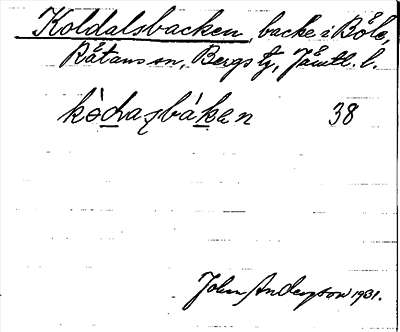 Koldalsbacken, backe i Böle,
Råtans sn, Bergs tg, Jämtl. l.
38
John Anderson 1931.